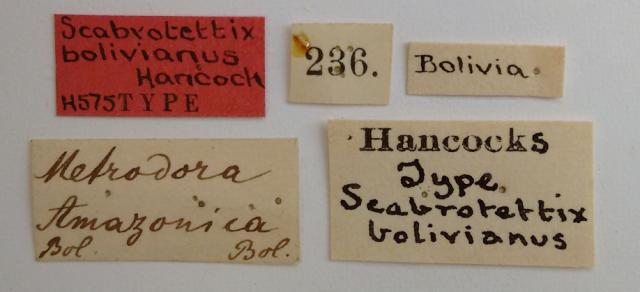 Scabrotettix
bolivianus
Hancock
H575 TYPE
236.
Bolivia.
Metrodora
Amazonica
Bol. Bol.
Hancocks
Type
Scabrotettix
bolivianus